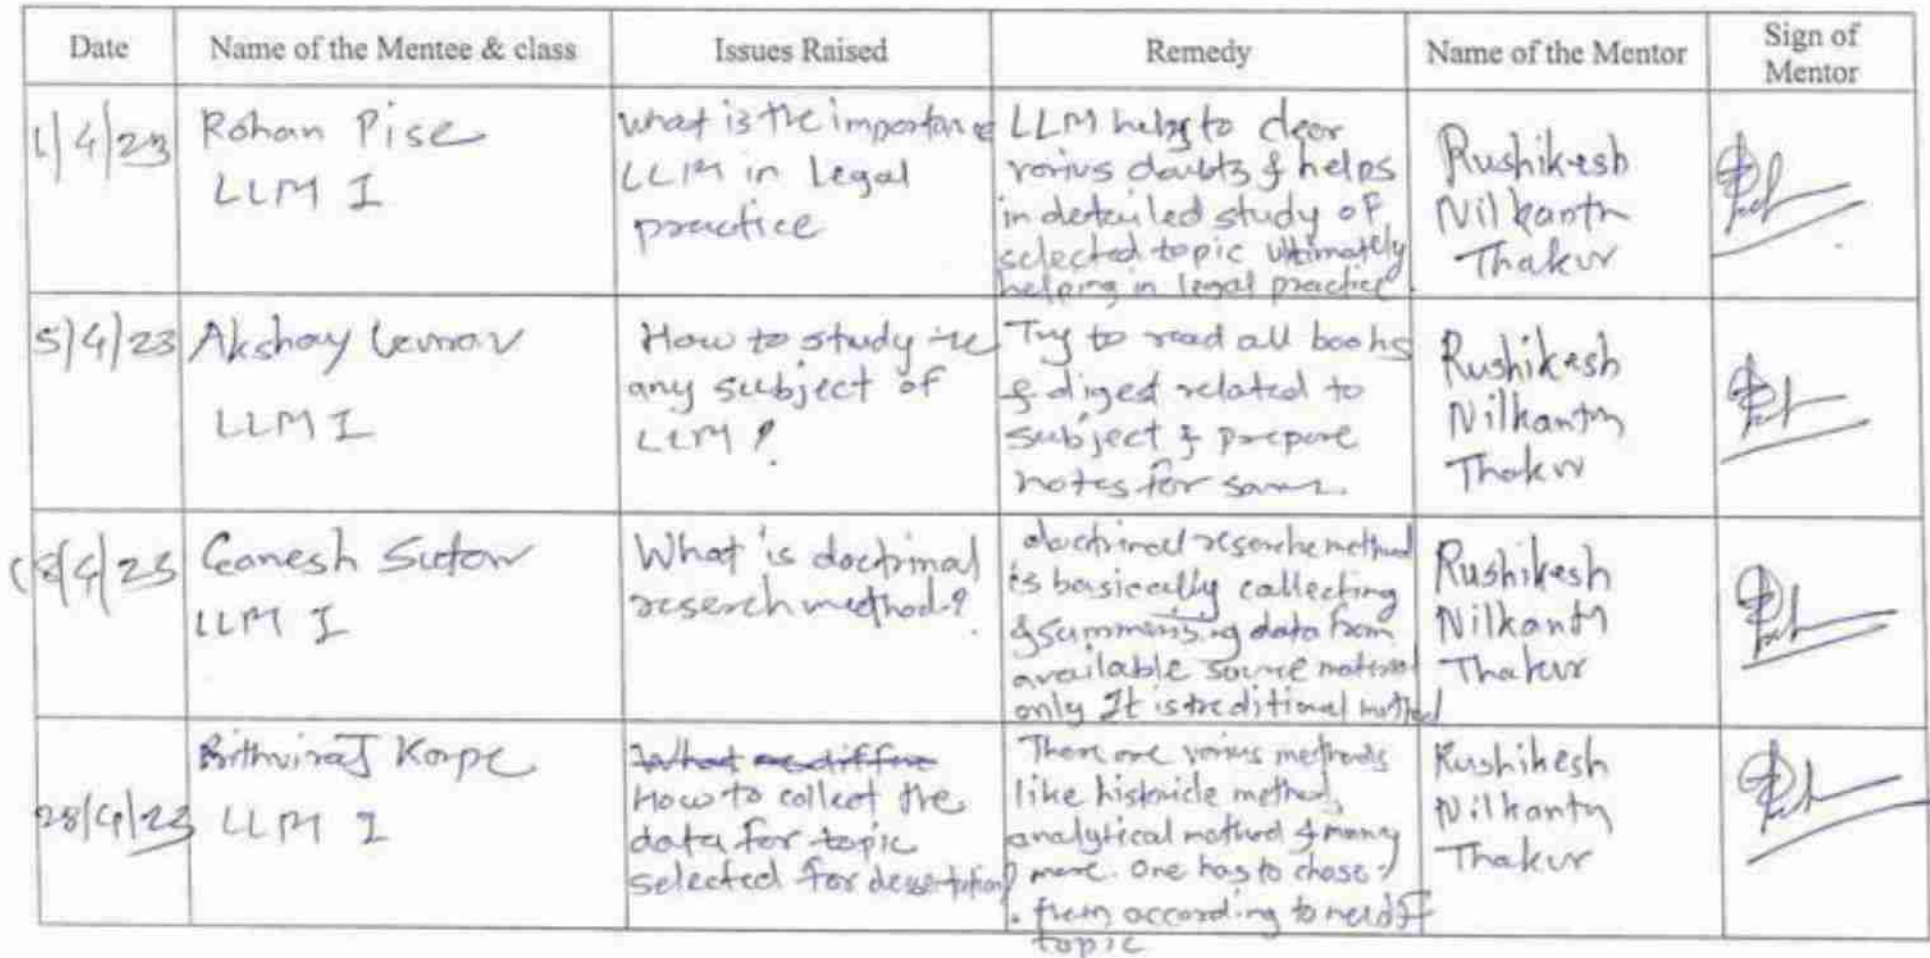 Date Name of the Mentee & class Issues Raised Remedy Name of the Mentor Sign of Mentor
1/4/23
Rohan Pise
LLM I
what is the importance
LLM in Legal
practice
LLM helps to clear
varius daubts & helps
in detailed study of
selected topic ultimately
helping in legal practice.
Rushikesh
Nilkanth
Thakur
5/4/23
Akshay
LLM I
How to study
any subject of
LLM?
Try to read all books
& digest related to
subject & prepare
notes for same.
Rushikesh
Nilkanth
Thakur
Ganesh Sutar
LLM I
What is doctrinal
reserch method?
doctrinal reserche method
is basically collecting
& summarising data from
available source material
only It is treditional method
Rushikesh
Nilkanth
Thakur
28/4/23
Prithviraj Korpe
LLM I
What are differe
How to collect the
data for topic
selected for dessertation?
There are varius methods
like historicle method,
analytical method & many
more. One has to chose
them according to need of
topic
Rushikesh
Nilkanth
Thakur